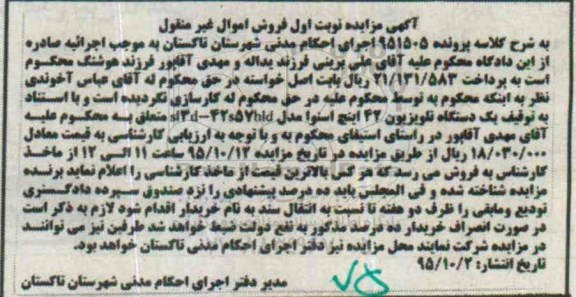 آگهی مزایده نوبت اول فروش اموال غیر منقول
به شرح کلاسه پرونده ۹۵۱۵۰۵ اجرای احکام مدنی شهرستان تاکستان به موجب اجرائیه صادره
از این دادگاه محکوم علیه آقای علی پرینی فرزند یداله و مهدی آقاپور فرزند هوشنگ محکوم
است به پرداخت ۲۱/۱۳۱/۵۸۳ ریال بابت اصل خواسته در حق محکوم له آقای عباس آخوندی
نظر به اینکه محکوم به توسط محکوم علیه در حق محکوم له کارسازی نگردیده است و با استناد
به توقیف یک دستگاه تلویزیون ۴۲ اینچ اسنوا مدل sl۲d-۴۲s۵۷bld متعلق به محکوم علیه
آقای مهدی آقاپور در راستای استیفای محکوم به و با توجه به ارزیابی کارشناسی به قیمت معادل
۱۸/۰۳۰/۰۰۰ ریال از طریق مزایده در تاریخ مزایده ۹۵/۱۰/۱۲ ساعت ۱۱ الی ۱۲ از ماخذ
کارشناس به فروش می رسد که هر کس بالاترین قیمت از ماخذ کارشناسی را اعلام نماید برنده
مزایده شناخته شده و فی المجلس باید ده درصد پیشنهادی را نزد صندوق سپرده دادگستری
تودیع و مابقی را ظرف دو هفته تا نسبت به انتقال سند به نام خریدار اقدام شود لازم به ذکر است
در صورت انصراف خریدار ده درصد مذکور به نفع دولت ضبط خواهد شد طرفین نیز می توانند
در مزایده شرکت نمایند محل مزایده نیز دفتر اجرای احکام مدنی تاکستان خواهد بود.
تاریخ انتشار: ۹۵/۱۰/۲
مدیر دفتر اجرای احکام مدنی شهرستان تاکستان